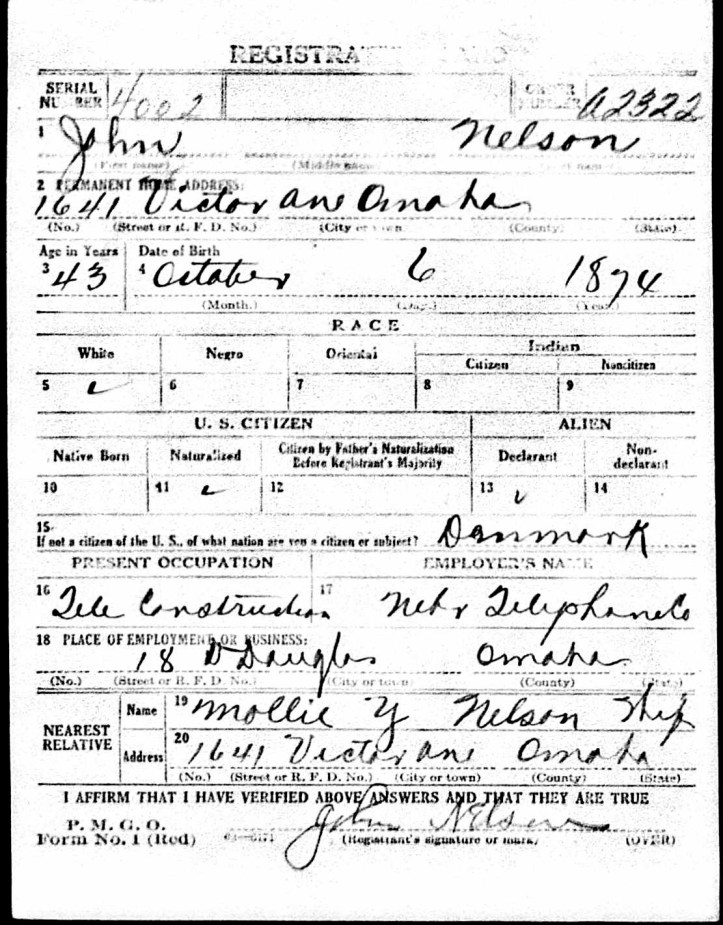 REGISTRATION CARD
SERIAL NUMBER 4002 ORDER NUMBER A2322
1 John Nelson
(First name) (Middle name) (Last name)
2 PERMANENT HOME ADDRESS:
1641 Victor ane Omaha
(No.) (Street or R. F. D. No.) (City or town) (County) (State)
Age in Years Date of Birth
3 43 4 October 6 1874
(Month.) (Day.) (Year.)
RACE
White Negro Oriental Indian
Citizen Noncitizen
5 6 7 8 9
U. S. CITIZEN ALIEN
Native Born Naturalized Citizen by Father's Naturalization Before Registrant's Majority Declarant Non-declarant
10 11 12 13 14
15
If not a citizen of the U. S., of what nation are you a citizen or subject? Denmark
PRESENT OCCUPATION EMPLOYER'S NAME
16 Tele Construction 17 Nebr Telephone Co
18 PLACE OF EMPLOYMENT OR BUSINESS:
18 & Douglas Omaha
(No.) (Street or R. F. D. No.) (City or town) (County) (State)
NEAREST RELATIVE
Name 19 Mollie Y Nelson
Address 20 1641 Victor ane Omaha
(No.) (Street or R. F. D. No.) (City or town) (County) (State)
I AFFIRM THAT I HAVE VERIFIED ABOVE ANSWERS AND THAT THEY ARE TRUE
P. M. G. O.
Form No. 1 (Red) John Nelson
(Registrant's signature or mark) (OVER)